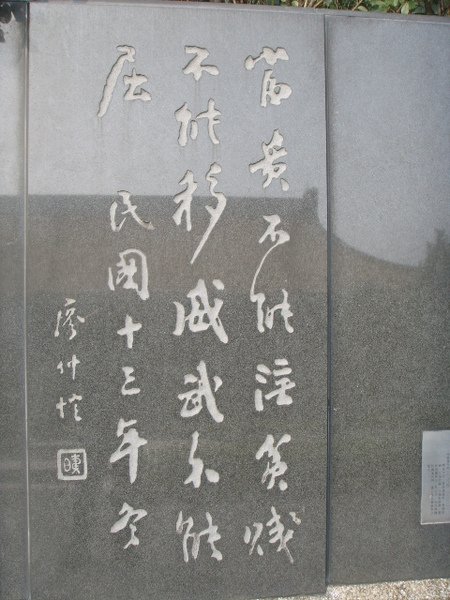 富貴不能淫貧賤
不能移威武不能
屈 民國十三年冬
廖仲愷